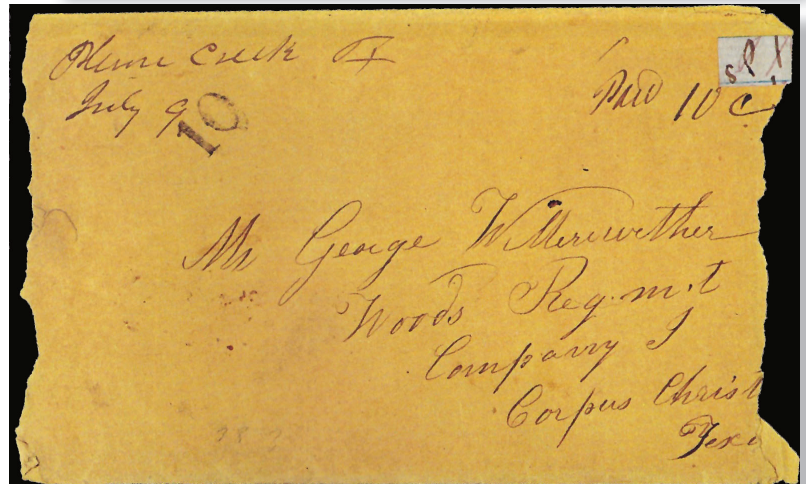 Plum Creek Tx
July 9
10
Paid 10 c
Mr George W Meriwether
Woods Reg.m.t
Company I
Corpus Christ
Texa